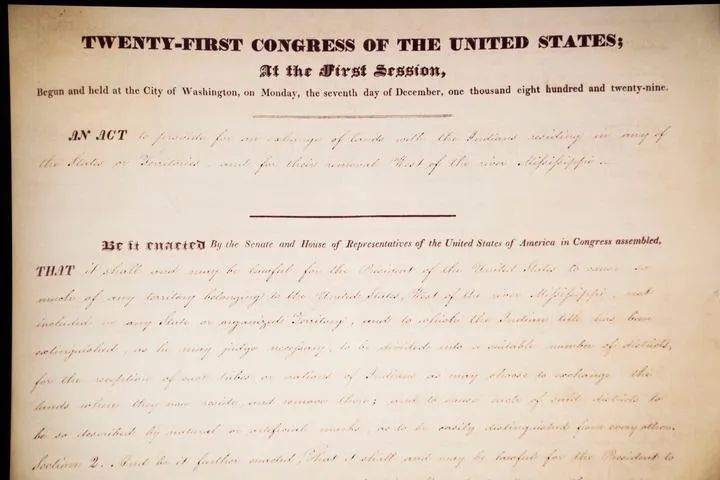 TWENTY-FIRST CONGRESS OF THE UNITED STATES;
At the First Session,
Begun and held at the City of Washington, on Monday, the seventh day of December, one thousand eight hundred and twenty-nine.
AN ACT to provide for an exchange of lands with the Indians residing in any of
the States or Territories, and for their removal West of the river Mississippi.
Be it enacted By the Senate and House of Representatives of the United States of America in Congress assembled,
THAT it shall and may be lawful for the President of the United States to cause so
much of any territory belonging to the United States, West of the river Mississippi, not
included in any State or organized Territory, and to which the Indian title has been
extinguished, as he may judge necessary, to be divided into a suitable number of districts,
for the reception of such tribes or nations of Indians as may choose to exchange the
lands where they now reside, and remove there; and to cause each of said districts to
be so described by natural or artificial marks, as to be easily distinguished from every other.
Section 2. And be it further enacted, That it shall and may be lawful for the President to